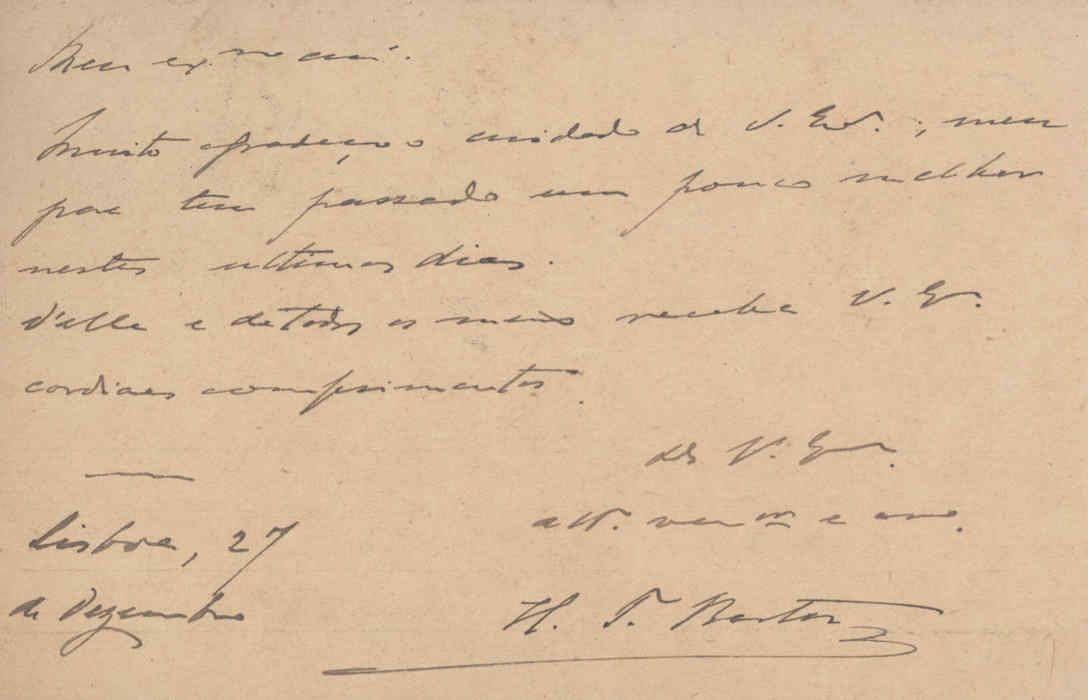 Meu ex.mo am.º.
Muito agradeço o cuidado de V. Ex.ª; meu
pae tem passado um pouco melhor
nestes ultimos dias.
D'elle e de todos os mais receba V. Ex.ª
cordiaes comprimentos.
De V. Ex.ª
att.º ven.or e
Lisboa, 27
de Dezembro
H. T. Bastos